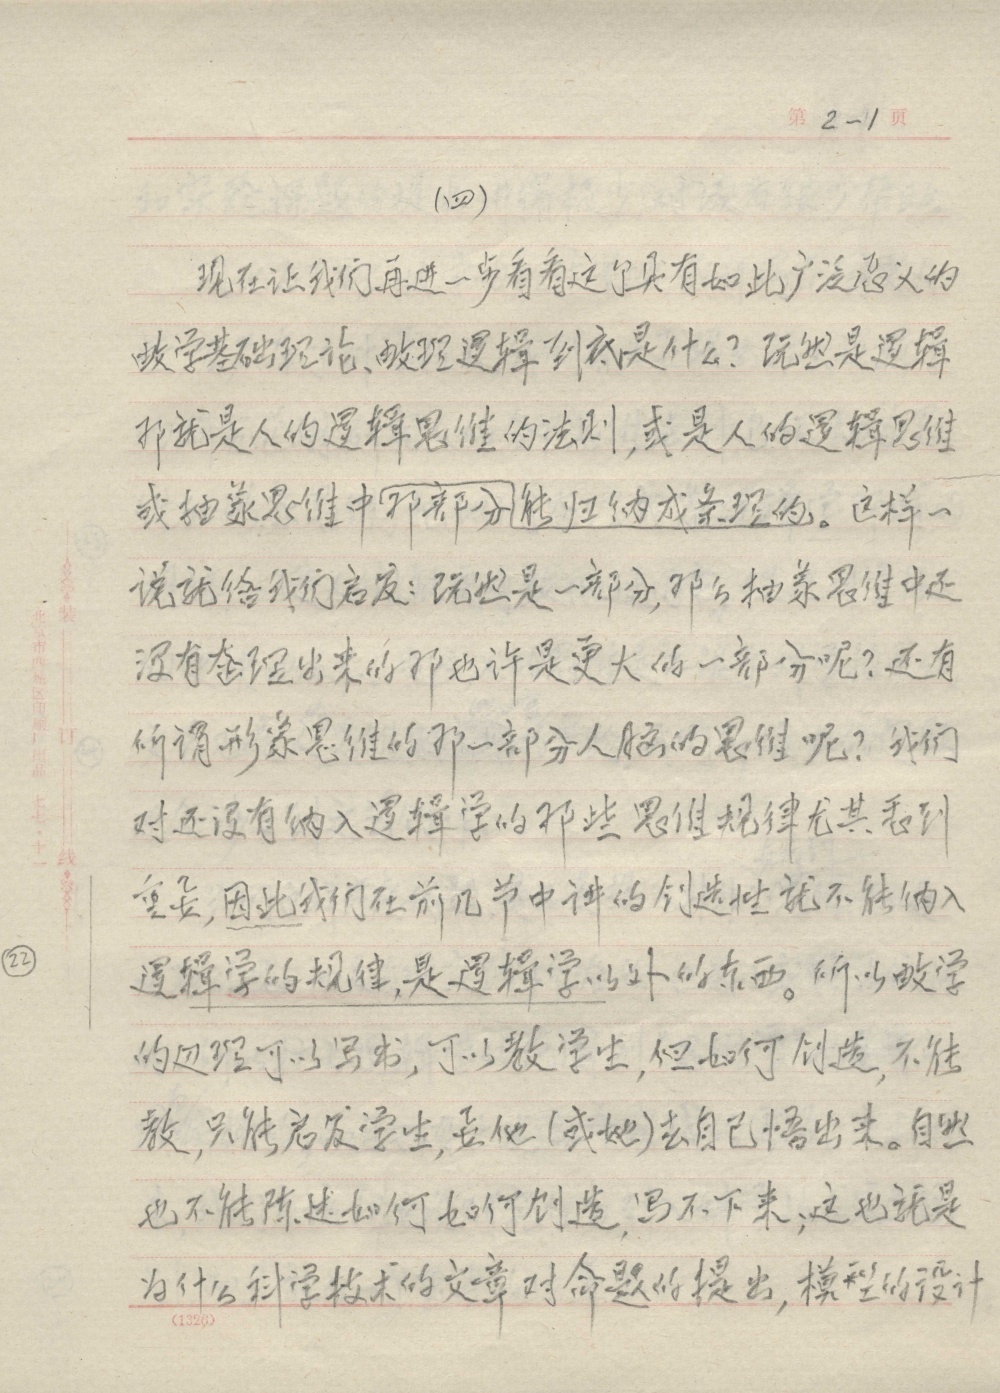 第 2-1 页
(四)
现在让我们再进一步看看这个具有如此广泛意义的
数学基础理论、数理逻辑到底是什么？既然是逻辑
那就是人的逻辑思维的法则，或是人的逻辑思维
或抽象思维中那部分能归纳成条理的。这样一
说就给我们启发：既然是一部分，那么抽象思维中还
没有整理出来的那也许是更大的一部分呢？还有
所谓形象思维的那一部分人脑的思维呢？我们
对还没有纳入逻辑学的那些思维规律尤其感到
重要，因此我们在前几节中讲的创造性就不能纳入
逻辑学的规律，是逻辑学以外的东西。所以数学
的道理可以写书，可以教学生，但如何创造，不能
教，只能启发学生，要他(或她)去自己悟出来。自然
也不能陈述如何如何创造，写不下来；这也就是
为什么科学技术的文章对命题的提出，模型的设计
22
装
订
线
(1326)